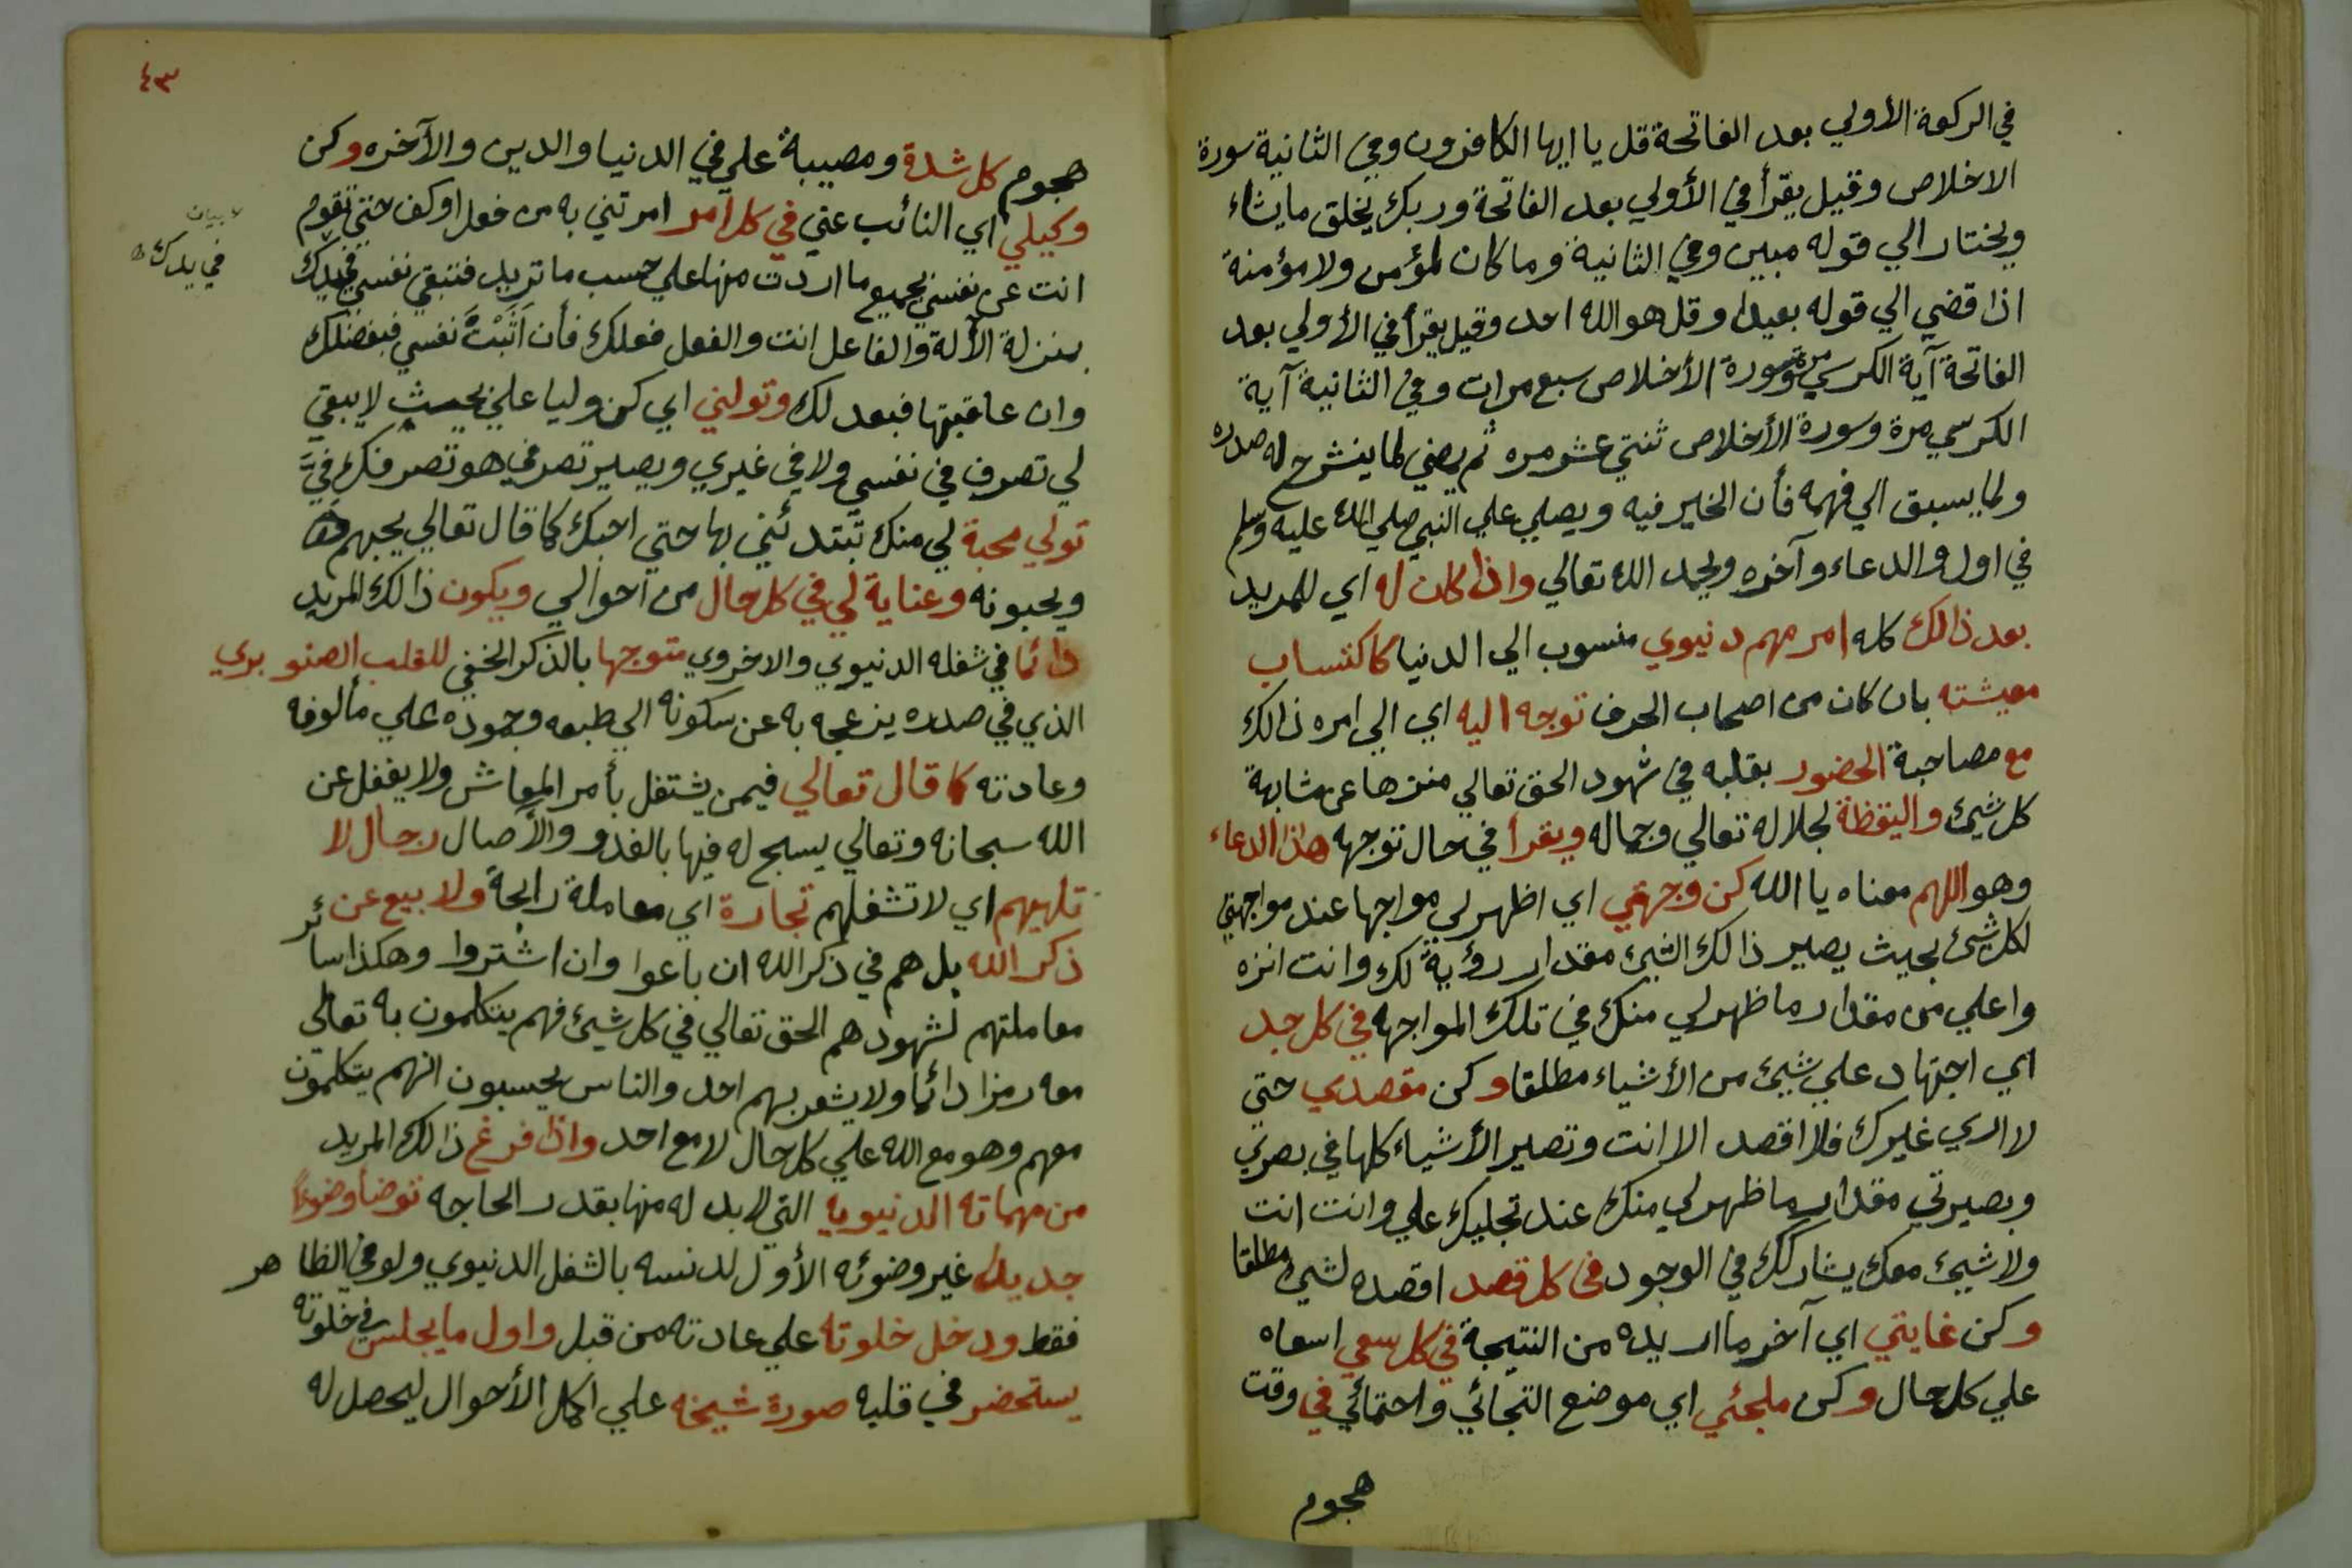 في الركعة الأولي بعد الفاتحة قل يا ايها الكافرون وفي الثانية سورة
الاخلاص وقيل يقرأ في الأولي بعد الفاتحة وربك يخلق ما يشاء
ويختار الي قوله مبين وفي الثانية وما كان لمؤمن ولا مؤمنة
اذا قضي الي قوله بعيدا وقل هو الله احد وقيل يقرأ في الأولي بعد
الفاتحة آية الكرسي مرة وسورة الأخلاص سبع مرات وفي الثانية آية
الكرسي مرة وسورة الأخلاص ثنتي عشر مره ثم يمضي لما ينشرح له صدره
ولما يسبق الي فهمه فأن الخير فيه ويصلي علي النبي صلي الله عليه وسلم
في اول والدعاء وآخره ويحمد الله تعالي واذا كان له اي للمريد
بعد ذالك كله امر مهم دنيوي منسوب الي الدنيا كاكتساب
معيشته بان كان من اصحاب الحرف توجه اليه اي الي امره ذالك
مع مصاحبة الحضور بقلبه في شهود الحق تعالي منزها عن مشابهة
كل شيئ واليقظة لجلاله تعالي وجماله ويقرأ في حال توجهه هذا الدعاء
وهو اللهم معناه يا الله كن وجهتي اي اظهر لي مواجها عند مواجهتي
لكل شيئ بحيث يصير ذالك الشيئ مقدار رؤية لك وانت انزه
واعلي من مقدار ما ظهر لي منك في تلك المواجهه في كل جد
اي اجتهاد علي شيئ من الأشياء مطلقا وكن مقصدي حتي
لا اري غيرك فلا اقصد الا انت وتصير الأشياء كلها في بصري
وبصيرتي مقدار ما ظهر لي منك عند تجليك علي وانت انت
ولا شيئ معك يشاركك في الوجود في كل قصد اقصده لشيئ مطلقا
وكن غايتي اي آخر ما اريده من النتيجة في كل سعي اسعاه
علي كل حال وكن ملجئي اي موضع التجائي واحتمائي في وقت
هجوم
٤٣
هجوم كل شدة ومصيبة علي في الدنيا والدين والآخره وكن
وكيلي اي النائب عني في كل امر امرتني به من فعل او كف حتي تقوم
انت عن نفسي بجميع ما اردت منها علي حسب ما تريد فتبقي نفسي في يدك
بمنزلة الآلة والفاعل انت والفعل فعلك فأن اثبت نفسي فبفضلك
وان عاقبتها فبعدلك وتولني اي كن وليا علي بحيث لا يبقي
لي تصرف في نفسي ولا في غيري ويصير تصرفي هو تصرفك في
تولي محبة لي منك تبتدئني بها حتي احبك كما قال تعالي يحبهم
ويحبونه وعناية لي في كل حال من احوالي ويكون ذالك المريد
دائما في شغله الدنيوي والاخروي متوجها بالذكر الخفي للقلب الصنوبري
الذي في صدره ينزعجه به عن سكونه الي طبعه وجموده علي مألوفه
وعادته كما قال تعالي فيمن يشتغل بأمر المعاش ولا يغفل عن
الله سبحانه وتعالي يسبح له فيها بالغدو والأصال رجال لا
تلهيهم اي لا تشغلهم تجارة اي معاملة رابحة ولا بيع عن
ذكر الله بل هم في ذكر الله ان باعوا وان اشتروا وهكذا سائر
معاملتهم لشهودهم الحق تعالي في كل شيئ فهم يتكلمون به تعالي
معه رمزا دائما ولا يشعر بهم احد والناس يحسبون انهم يتكلمون
معهم وهو مع الله علي كل حال لا مع احد واذا فرغ ذالك المريد
من مهماته الدنيويه التي لا بد له منها بقدر الحاجه توضأ وضوءاً
جديدا غير وضوئه الأول لدنسه بالشغل الدنيوي ولو في الظاهر
فقط ودخل خلوته علي عادته من قبل واول ما يجلس في خلوته
يستحضر في قلبه صورة شيخه علي اكمل الأحوال ليحصل له
بيان
في يدك